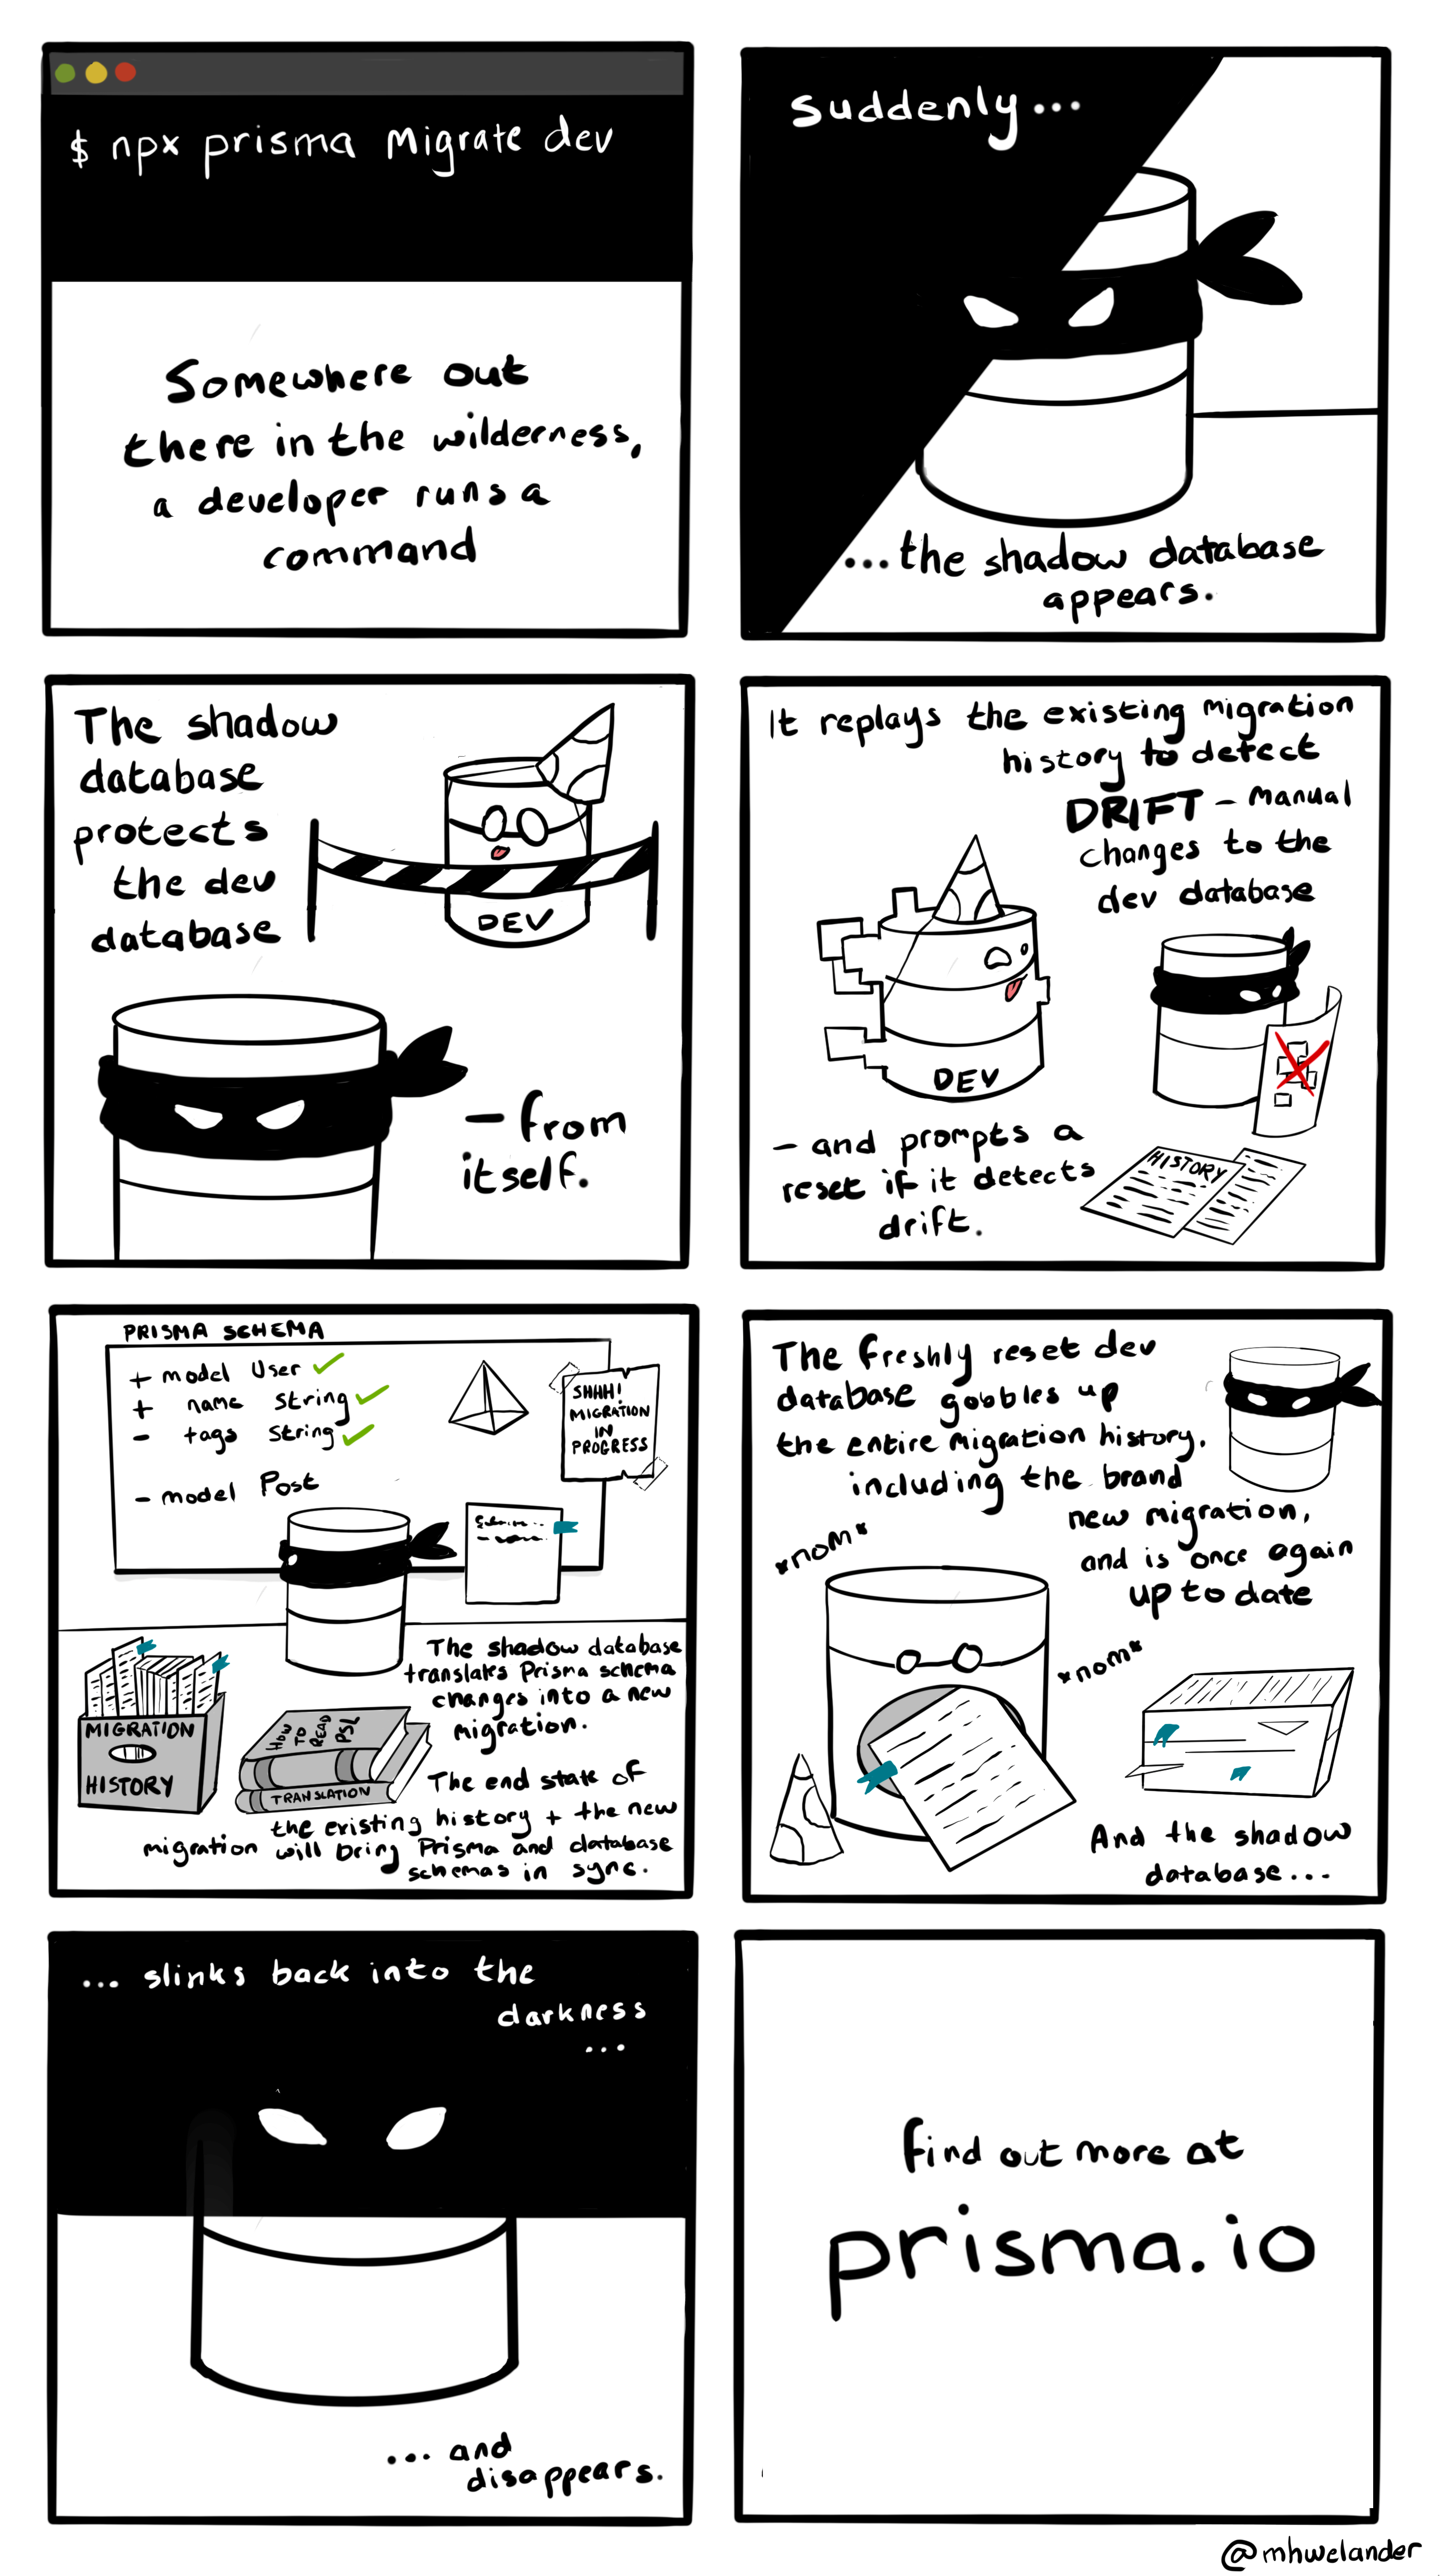 $ npx prisma Migrate dev
Somewhere out
there in the wilderness,
a developer runs a
command
Suddenly...
...the shadow database
appears.
The shadow
database
protects
the dev
database
DEV
- from
itself.
It replays the existing migration
history to detect
DRIFT - manual
changes to the
dev database
DEV
HISTORY
- and prompts a
reset if it detects
drift.
PRISMA SCHEMA
+ model User ✓
+ name String ✓
- tags String ✓
- model Post
SHHH!
MIGRATION
IN
PROGRESS
MIGRATION
HISTORY
HOW
TO
READ
PSL
TRANSLATION
The shadow database
translates Prisma schema
changes into a new
migration.
The end state of
the existing history + the new
migration will bring Prisma and database
schemas in sync.
The freshly reset dev
database gobbles up
the entire migration history,
including the brand
new migration,
and is once again
up to date
*nom*
*nom*
And the shadow
database...
... slinks back into the
darkness
...
... and
disappears.
find out more at
prisma.io
@mhwelander